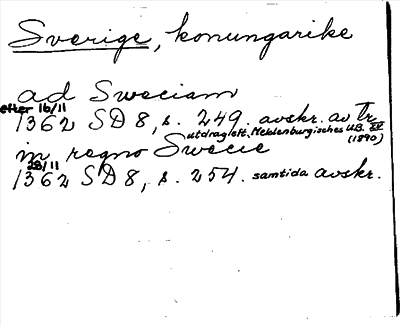 Sverige, konungarike
ad Sweciam
efter 16/11
1362 SD 8, s. 249. avskr. av Tr.
utdrag eft. Meklenburgisches U.B. XV
(1890)
in regno Swecie
28/11
1362 SD 8, s. 254. samtida avskr.